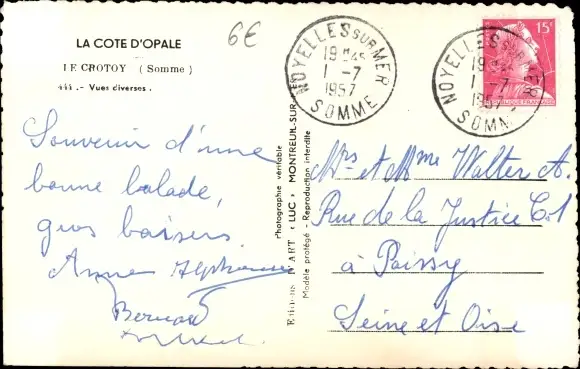 LA COTE D'OPALE
LE CROTOY (Somme)
444. - Vues diverses.
6€
Souvenir d'une
bonne balade,
gros baisers.
Anne Alphonse
Bernard
Photographie véritable
Editions D'ART "LUC" MONTREUIL-SUR-MER
Modèle protégé - Reproduction interdite
NOYELLES SUR MER
19H45
1 -7
1957
SOMME
NOYELLES SUR MER
1 -7
1957
SOMME
15F
REPUBLIQUE FRANCAISE
Mrs et Mme Walter A.
Rue de la Justice C1
à Poissy
Seine et Oise